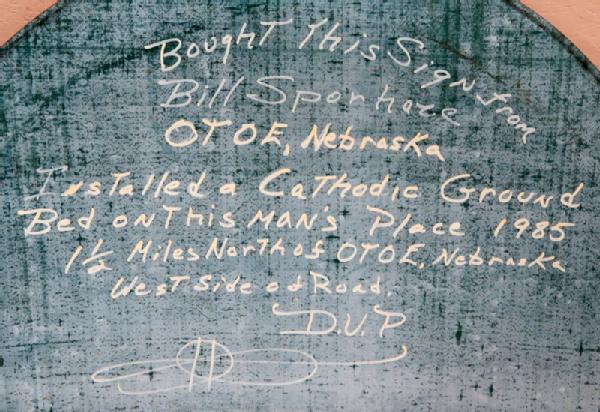 Bought This Sign from
Bill Sponhaze
OTOE, Nebraska
Installed a Cathodic Ground
Bed on This MAN's Place 1985
1½ Miles North of OTOE, Nebraska
West Side of Road.
D.V.P